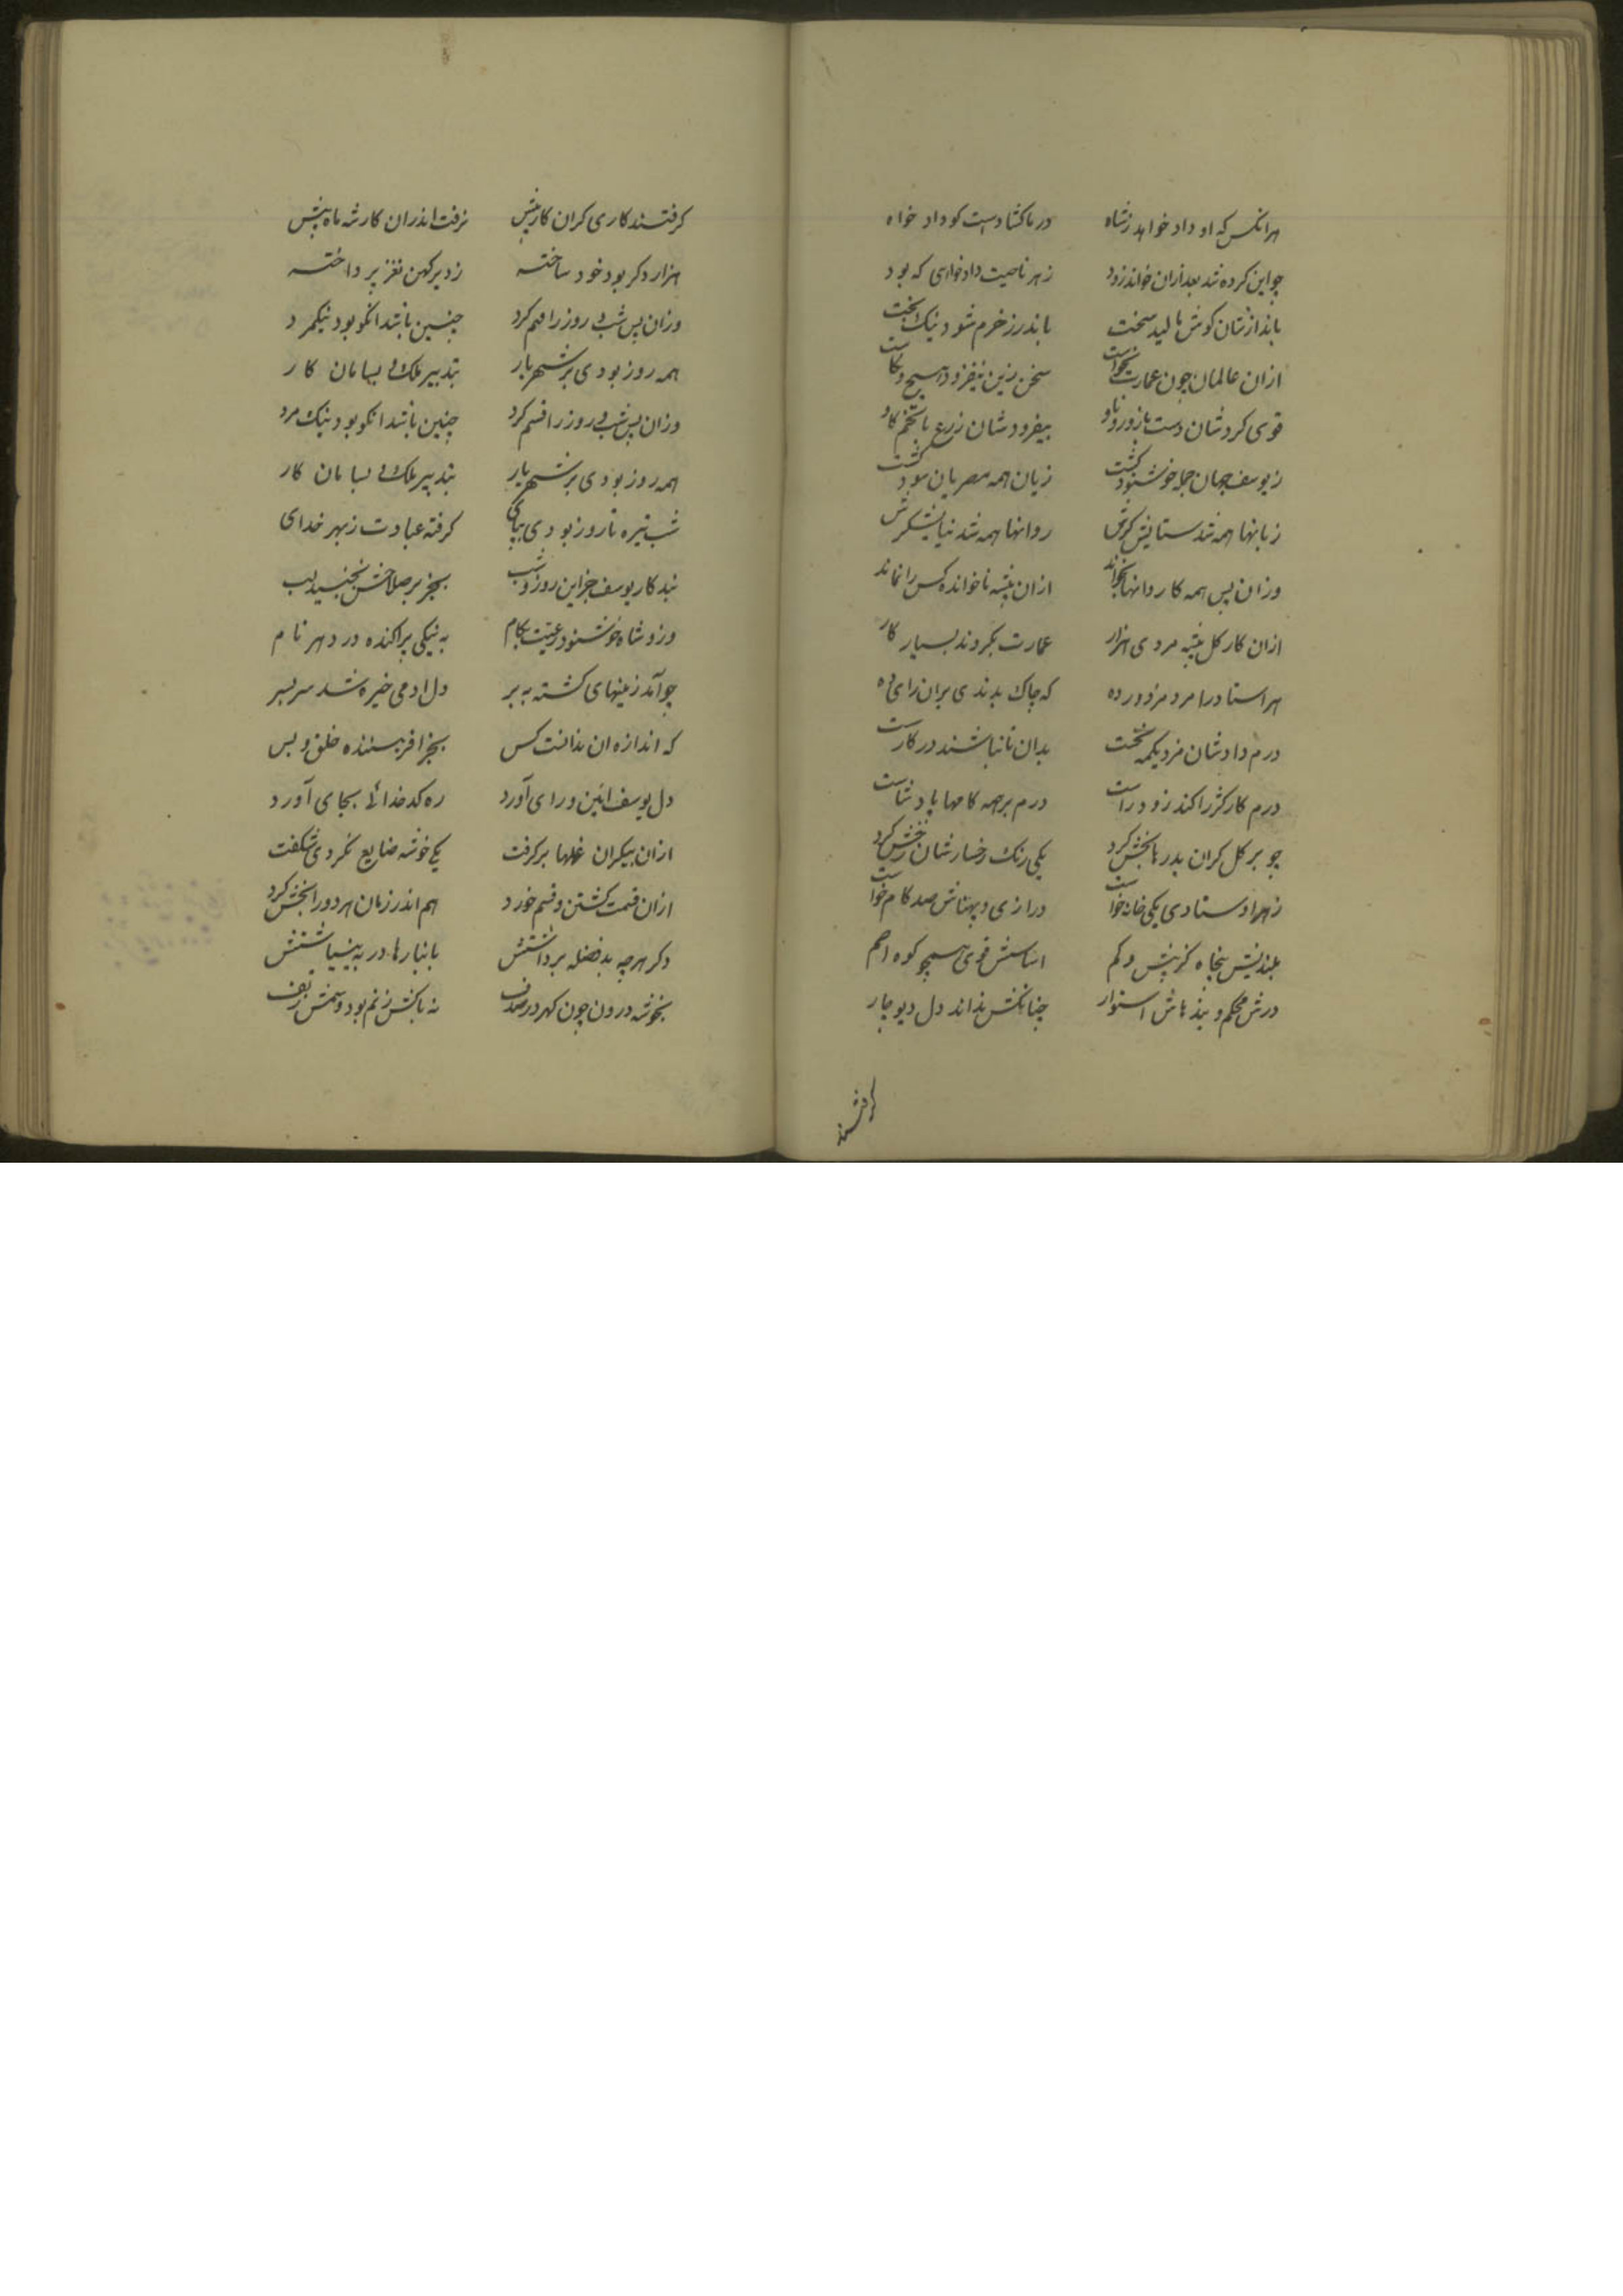 هرانکس که او داد خواهد زشاه در ما کشادست کو داد خواه
چو این کرده شد بعد ازان خواند زود زهر ناحیت داد خواهی که بود
باندازشان کوش مالید سخت باندرز خرم شود نیک بخت
ازان عالمان چون عمارت بخواست سخن زین نیفزود هیچ و نکاست
قوی کردشان دست بازور و تاو بیفزودشان زرع با تخم کاو
زیوسف جهان جمله خوشنود کشت زیان همه مصریان سود کشت
زبانها همه شد ستایش کرش روانها همه شد نیایشکرش
وزان پس همه کاردانها بخواند ازان پیشه ناخوانده کس را نماند
ازان کار کل پیشه مردی هزار عمارت بکردند بسیار کار
هر استاد را مرد مزدور ده که چابک بدندی بران رای ده
درم دادشان مزد یکمه نخست بدان تا نباشند در کار سست
درم کار کژ را کند زود راست درم بر همه کامها پادشاست
چو بر کل کران بدرها بخش کرد یکی رنک رخسارشان رخش کرد
زهر اوستادی یکی خانه خواست درازی و پهناش صد کام خواست
بلندیش پنجاه کز بیش و کم اساسش قوی همچو کوه اصم
درش محکم و بندهاش استوار چنانکش نداند دل دیو چار
کرفتند
کرفتند کاری کران کار پیش نرفت اندران کار شه ماه بیش
هزار دکر بود خود ساخته زدیر کهن نغز پرداخته
وزان پس شب و روز را قسم کرد چنین باشد انکو بود نیکمرد
همه روز بودی بر شهریار بتدبیر ملک و بسامان کار
وزان پس شب و روز را قسم کرد چنین باشد انکو بود نیک مرد
همه روز بودی بر شهریار بتدبیر ملک و بسامان کار
شب تیره تا روز بودی بپای کرفته عبادت زبهر خدای
نبد کار یوسف جز این روز و شب بجز بر صلاحش نجنبید لب
وزو شاه خوشنود و رعیت بکام به نیکی پراکنده در دهر نام
چو آمد زمینهای کشته به بر دل ادمی خیره شد سربسر
که اندازه ان ندانست کس بجز افریننده خلق و بس
دل یوسف ائین و رای آورد ره کدخدائی بجای آورد
ازان بیکران غلها برکرفت یکی خوشه ضایع نکردی شکفت
ازان قسمت کشتن و قسم خورد هم اندر زمان هر دو را بخش کرد
دکر هرچه بد فضله برداشتش بانبارها در بینباشتش
بخوشه درون چون کهر در صدف نه باکش زنم بود و نه از تف